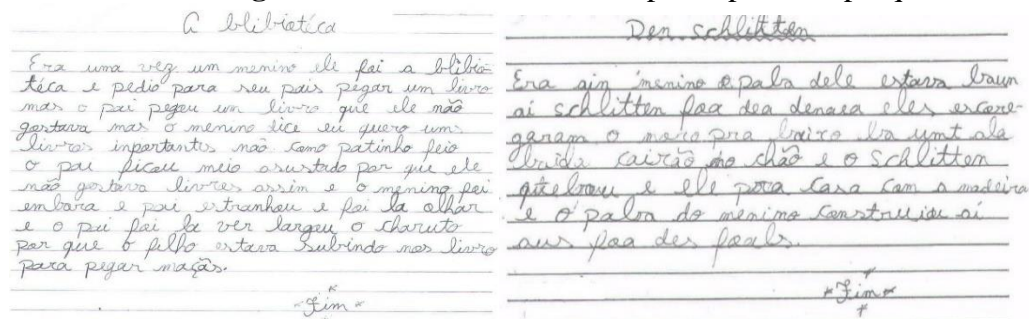 A blibiotéca
Era uma vez um menino ele foi a blibio-
téca e pedio para seu pais pegar um livro
mas o pai pegou um livro que ele não
gostava mas o menino dice eu quero uns
livros inportantes não como patinho feio
o pai ficou meio asustado por que ele
não gostava livros assim e o menino foi
embora e pai estranhou e foi la olhar
e o pai foi la ver largou o charuto
por que o filho estava subindo nos livro
para pegar maçãs.
*Fim*
Den schlitten
Era ain menino e palra dele estava baun
ai schlitten foa dea denaea eles escore-
garam o moro pra baixo ba umt ala
baida cairão no chão e o schlitten
quebrou e ele pora casa com a madeira
e o palra do menino construiou ai
aus foa des feals.
*Fim*